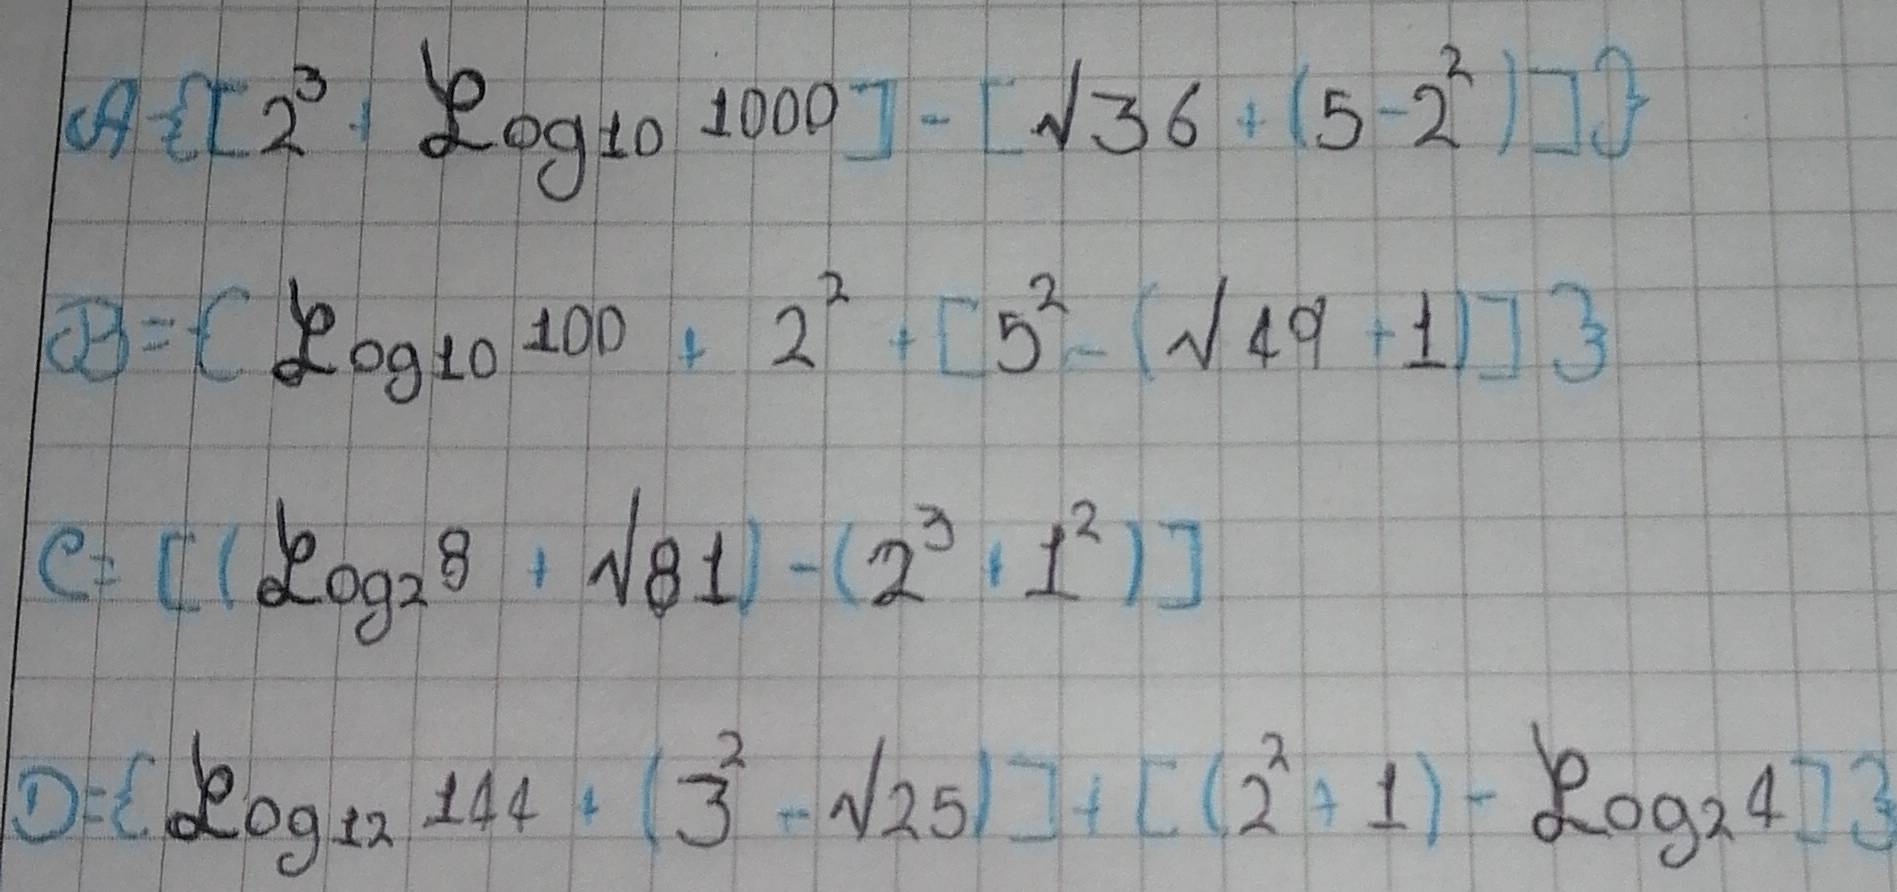 A {[2³ + Log₁₀ 1000] - [√36 + (5-2²)]}
B = { Log₁₀ 100 + 2² + [5² - (√49 + 1)]}
C = [(Log₂ 8 + √81) - (2³ + 1²)]
D = { Log₁₂ 144 + (3² - √25)] + [(2² + 1) - Log₂ 4]}